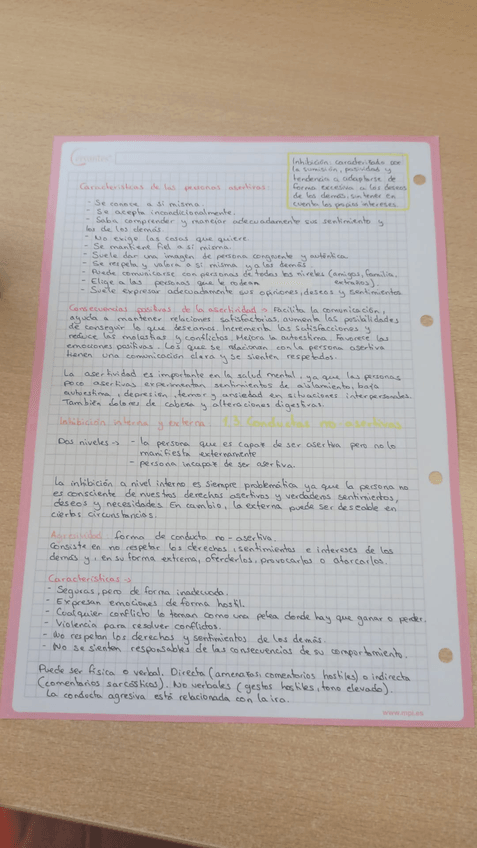 Inhibición: caracterizado por
la sumisión, pasividad y
tendencia a adaptarse de
forma excesiva a los deseos
de los demás, sin tener en
cuenta los propios intereses.
Características de las personas asertivas:
- Se conoce a sí misma.
- Se acepta incondicionalmente.
- Sabe comprender y manejar adecuadamente sus sentimiento y
los de los demás.
- No exige las cosas que quiere.
- Se mantiene fiel a sí misma.
- Suele dar una imagen de persona congruente y auténtica.
- Se respeta y valora a sí misma y a los demás.
- Puede comunicarse con personas de todos los niveles (amigos, familia,
extraños).
- Elige a las personas que le rodean
- Suele expresar adecuadamente sus opiniones, deseos y sentimientos
Consecuencias positivas de la asertividad → Facilita la comunicación,
ayuda a mantener relaciones satisfactorias, aumenta las posibilidades
de conseguir lo que deseamos. Incrementa las satisfacciones y
reduce las molestias y conflictos. Mejora la autoestima. Favorece las
emociones positivas. Los que se relacionan con la persona asertiva
tienen una comunicación clara y se sienten respetados.
La asertividad es importante en la salud mental, ya que las personas
poco asertivas experimentan sentimientos de aislamiento, baja
autoestima, depresión, temor y ansiedad en situaciones interpersonales.
También dolores de cabeza y alteraciones digestivas.
Inhibición interna y externa 3.3 Conductas no asertivas
Dos niveles → - la persona que es capaz de ser asertiva pero no lo
manifiesta externamente
- persona incapaz de ser asertiva.
La inhibición a nivel interno es siempre problemática ya que la persona no
es consciente de nuestros derechos asertivos y verdaderos sentimientos,
deseos y necesidades. En cambio, la externa puede ser deseable en
ciertas circunstancias.
Agresividad: forma de conducta no-asertiva.
Consiste en no respetar los derechos, sentimientos e intereses de los
demás y, en su forma extrema, ofenderlos, provocarlos o atacarlos.
Características →
- Seguras, pero de forma inadecuada.
- Expresan emociones de forma hostil.
- Cualquier conflicto lo toman como una pelea donde hay que ganar o perder.
- Violencia para resolver conflictos.
- No respetan los derechos y sentimientos de los demás.
- No se sienten responsables de las consecuencias de su comportamiento.
Puede ser física o verbal. Directa (amenazas, comentarios hostiles) o indirecta
(comentarios sarcásticos). No verbales (gestos hostiles, tono elevado).
La conducta agresiva está relacionada con la ira.